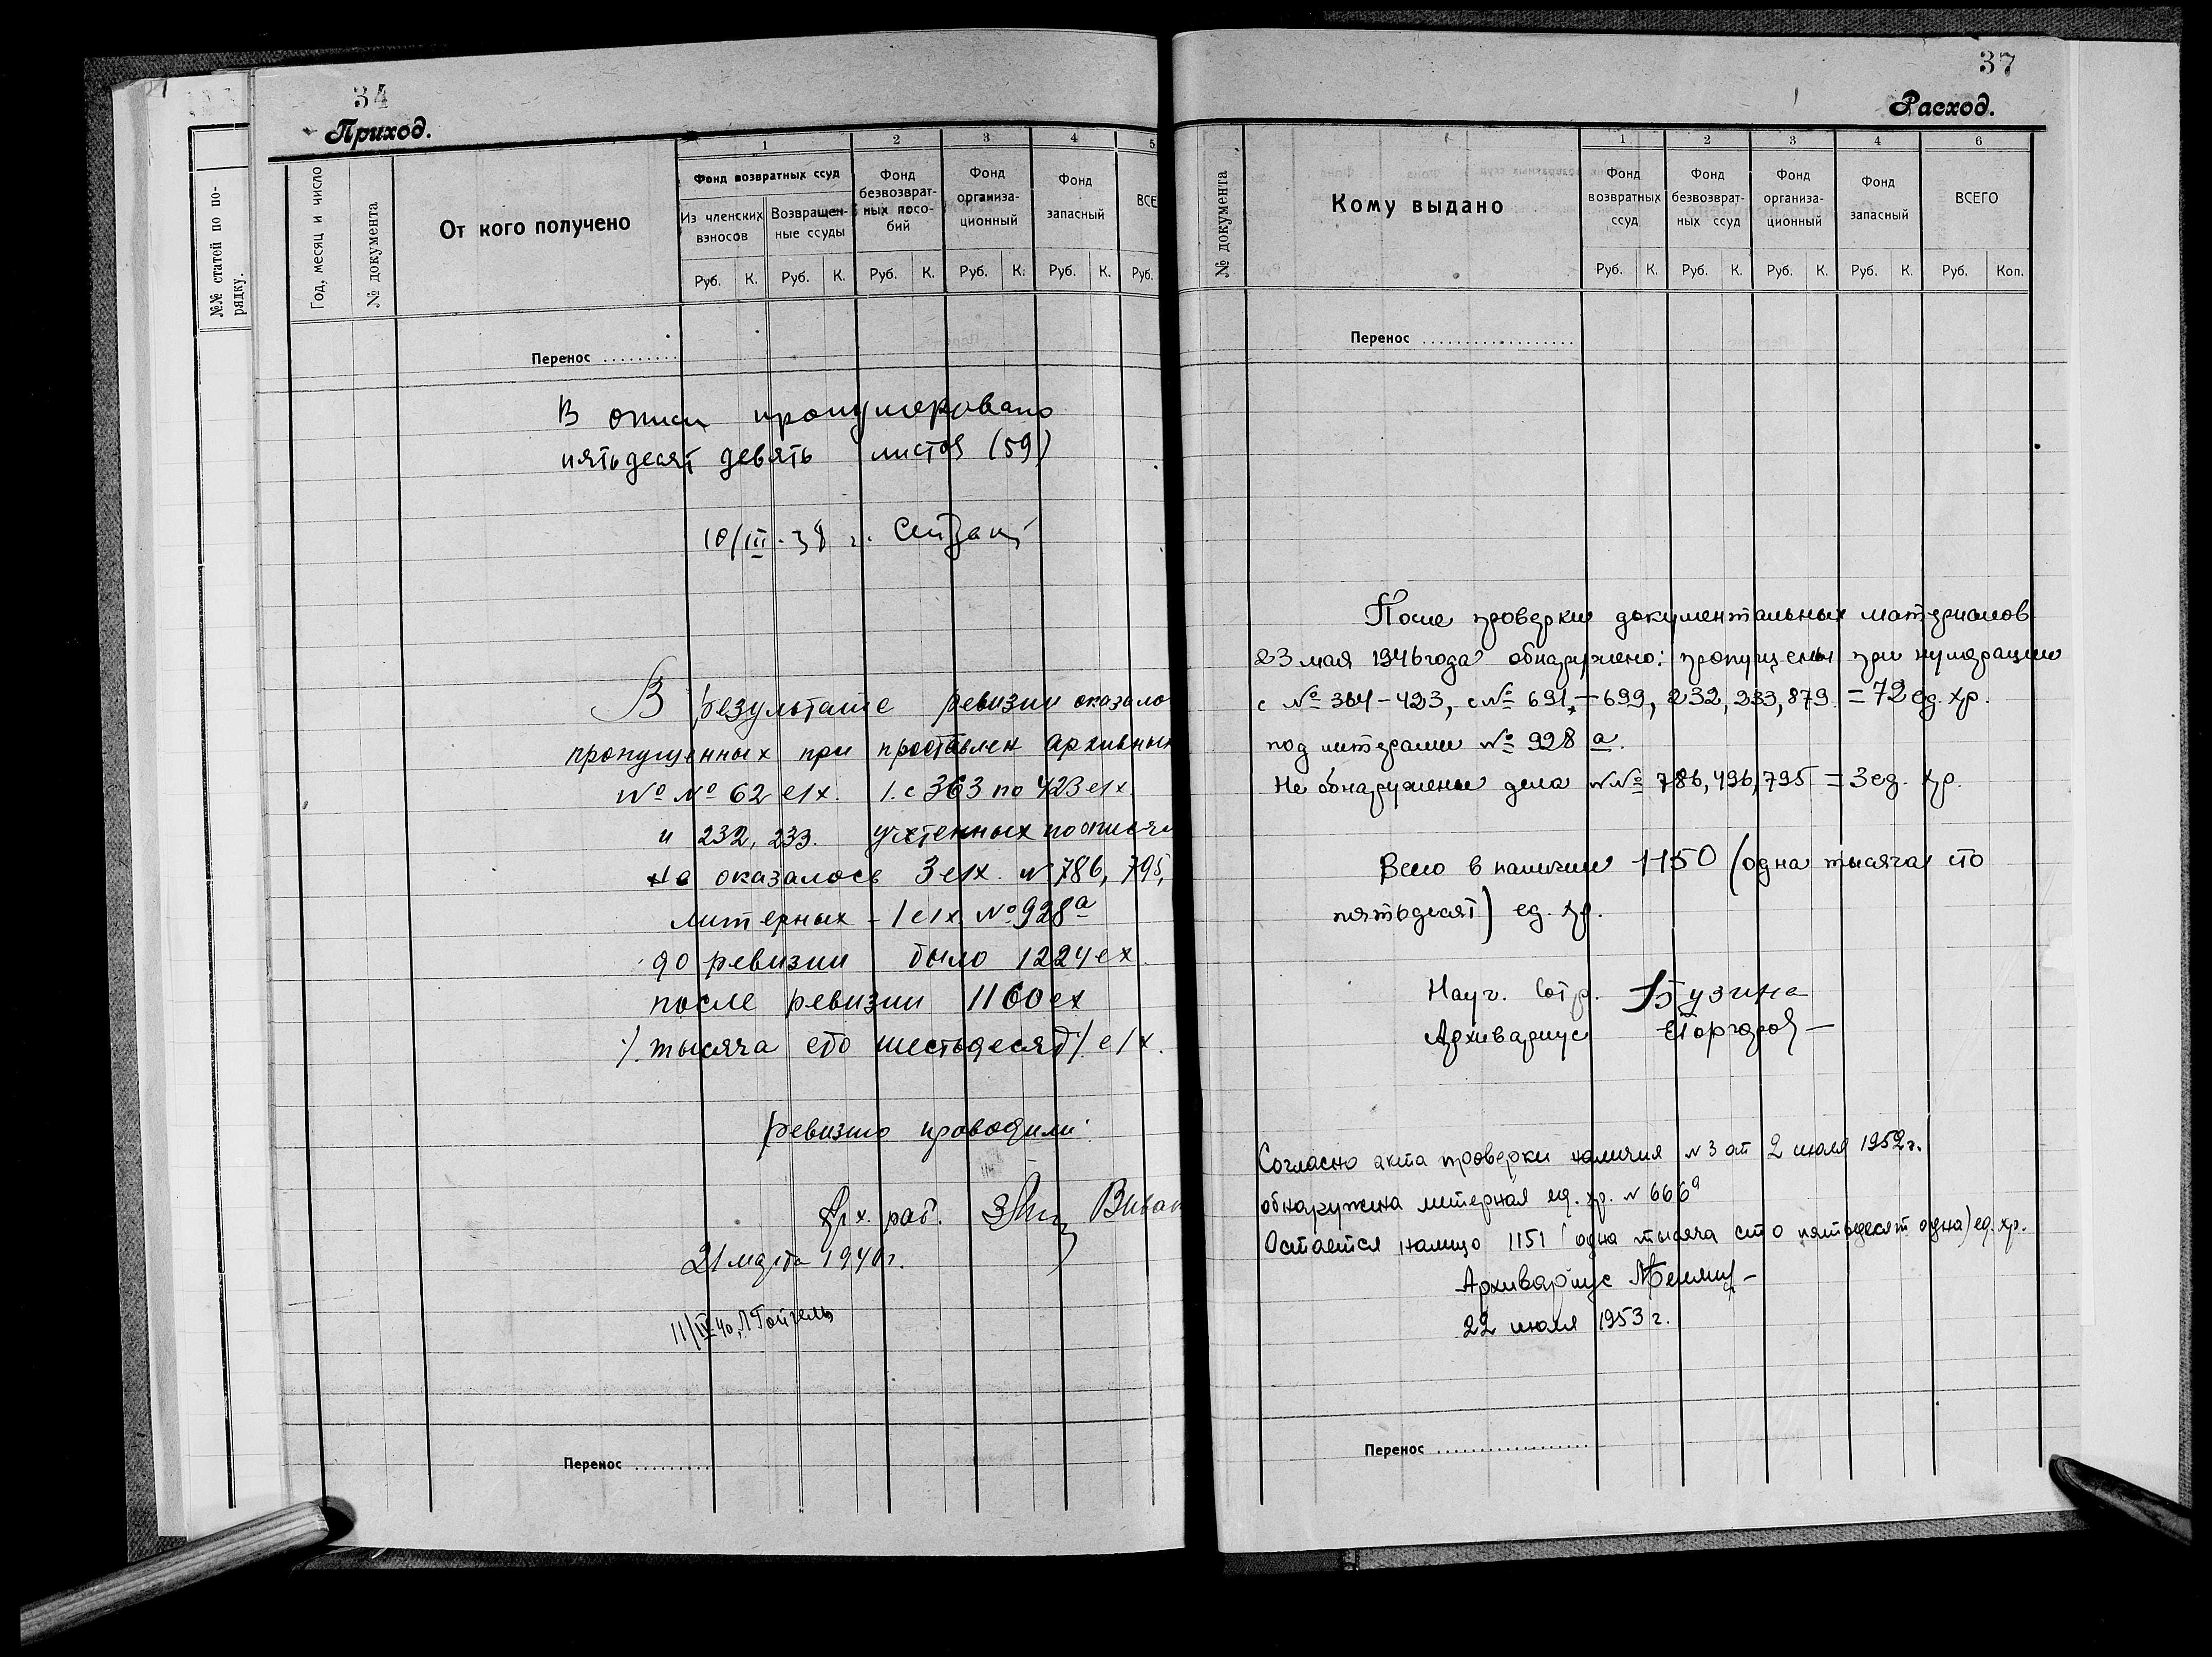 34
Приход.
№№ статей по по-
рядку.
Год, месяц и число
№ документа
От кого получено
1
Фонд возвратных ссуд
Из членских
взносов
Возвращен-
ные ссуды
2
Фонд
безвозврат-
ных посо-
бий
3
Фонд
организа-
ционный
4
Фонд
запасный
5
ВСЕ
Руб. К. Руб. К. Руб. К. Руб. К. Руб. К. Руб.
Перенос
В описи пронумеровано
пятьдесят девять листов (59)
10/III-38 г.
В результате ревизии оказало
пропущенных при проставлен архивных
№ № 62 е/х. /. с 363 по 423 е/х.
и 232, 233. учтенных по описям
не оказалось 3 е/х. № 786, 795,
литерных - 1 е/х №928а
до ревизии было 1224 ех.
после ревизии 1160 ех
/. тысяча сто шестьдесят/. е/х.
ревизию проводили:
Арх. раб.
21 марта 1940 г.
11/IV-40,
Перенос
37
Расход.
№ документа
Кому выдано
1
Фонд
возвратных
ссуд
2
Фонд
безвозврат-
ных ссуд
3
Фонд
организа-
ционный
4
Фонд
запасный
6
ВСЕГО
Руб. К. Руб. К. Руб. К. Руб. К. Руб. Коп.
Перенос
После проверки документальных материалов
23 мая 1946 года обнаружено: пропущены при нумерации
с № 364-423, с № 691-699, 232, 233, 879 = 72 ед. хр.
под литерами № 928 а.
Не обнаружены дела №№ 786, 496, 795 = 3 ед. хр.
Всего в наличии 1150 (одна тысяча сто
пятьдесят) ед. хр.
Науч. Сотр. Бузина
Архивариус
Согласно акта проверки наличия № 3 от 2 июля 1952 г.
обнаружена литерная ед. хр. № 666а
Остается налицо 1151 (одна тысяча сто пятьдесят одна) ед. хр.
Архивариус
22 июля 1953 г.
Перенос